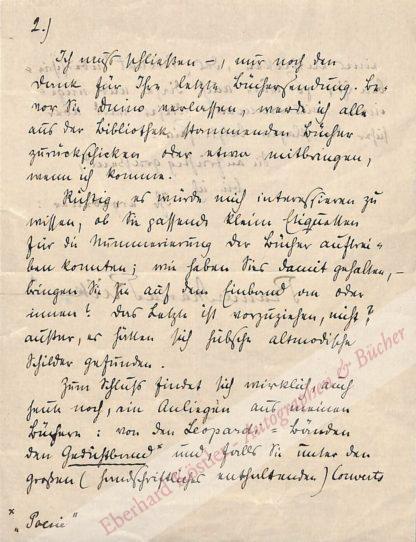 2.)
Ich muß schließen –, nur noch den
Dank für Ihre letzte Büchersendung. Be-
vor Sie Duino verlassen, werde ich alle
aus der Bibliothek stammenden Bücher
zurückschicken oder etwa mitbringen,
wenn ich komme.
Richtig, es würde mich interessieren zu
wissen, ob Sie passende kleine Etiquetten
für die Nummerierung der Bücher auftrei=
ben konnten; wie haben Sies damit gehalten, –
bringen Sie sie auf dem Einband an oder
innen? Das Letzte ist vorzuziehen, nicht?
außer, es hätten sich hübsche altmodische
Schilder gefunden.
Zum Schluß findet sich wirklich, auch
heute noch, ein Anliegen aus meinen
Büchern: von den Leopardi=Bänden
den Gedichtband* und falls Sie unter den
großen (Handschriftliches enthaltenden) Couverts
* „Poesie"
Eberhard Köstler - Autographen & Bücher